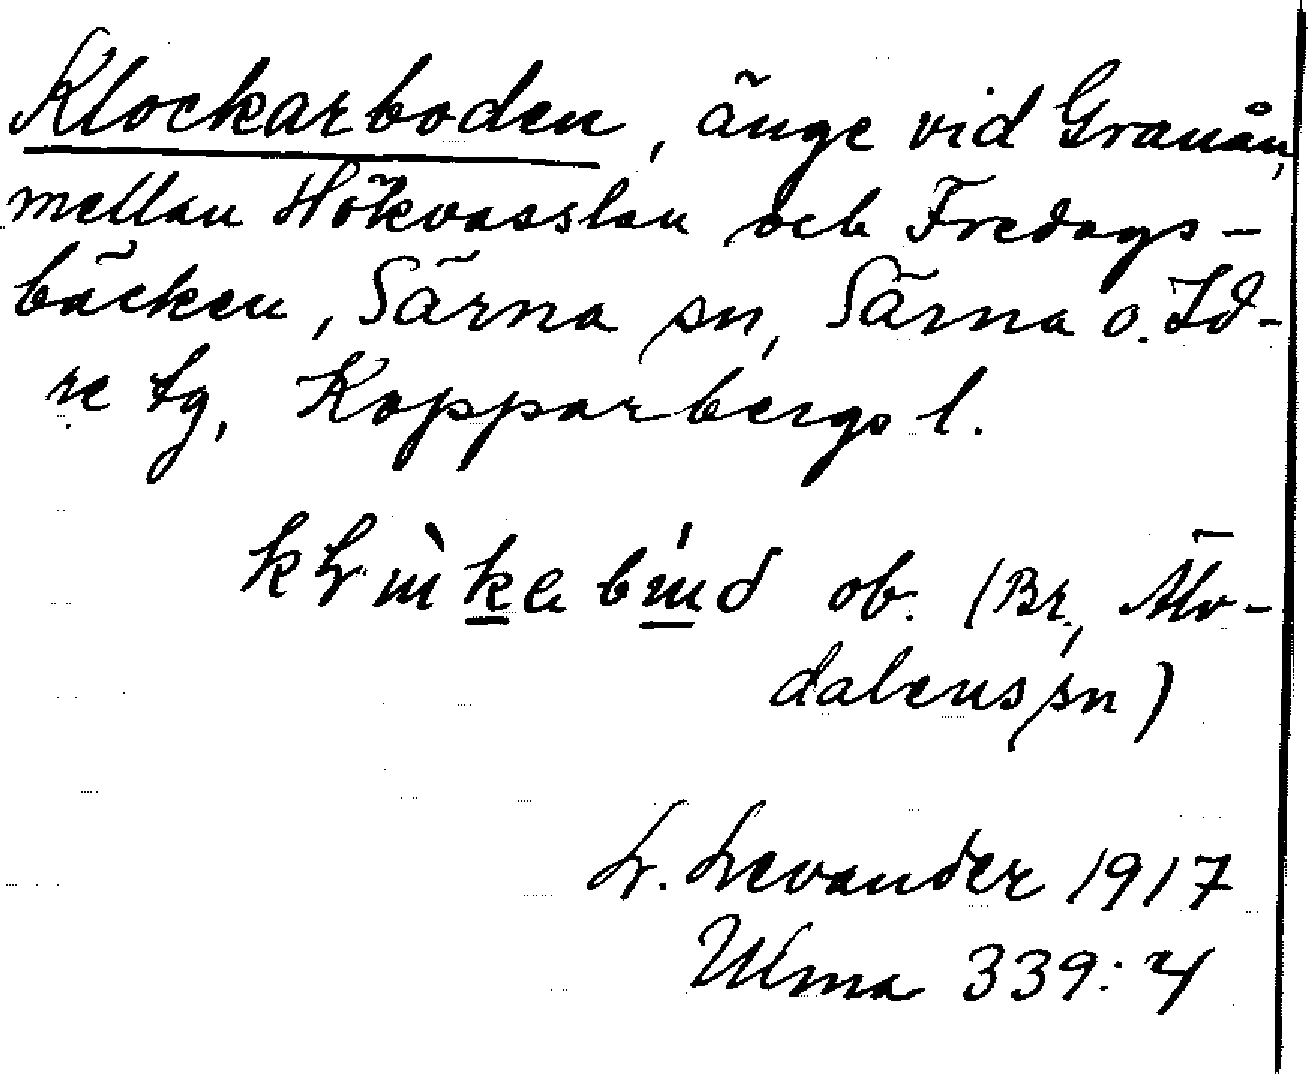 Klockarboden, änge vid Granån,
mellan Hökvasslan och Fredags-
bäcken, Särna sn, Särna o. Id-
re tg, Kopparbergs l.
ob. (Br., Älv-
dalens sn)
L. Levander 1917
Ulma 339:4